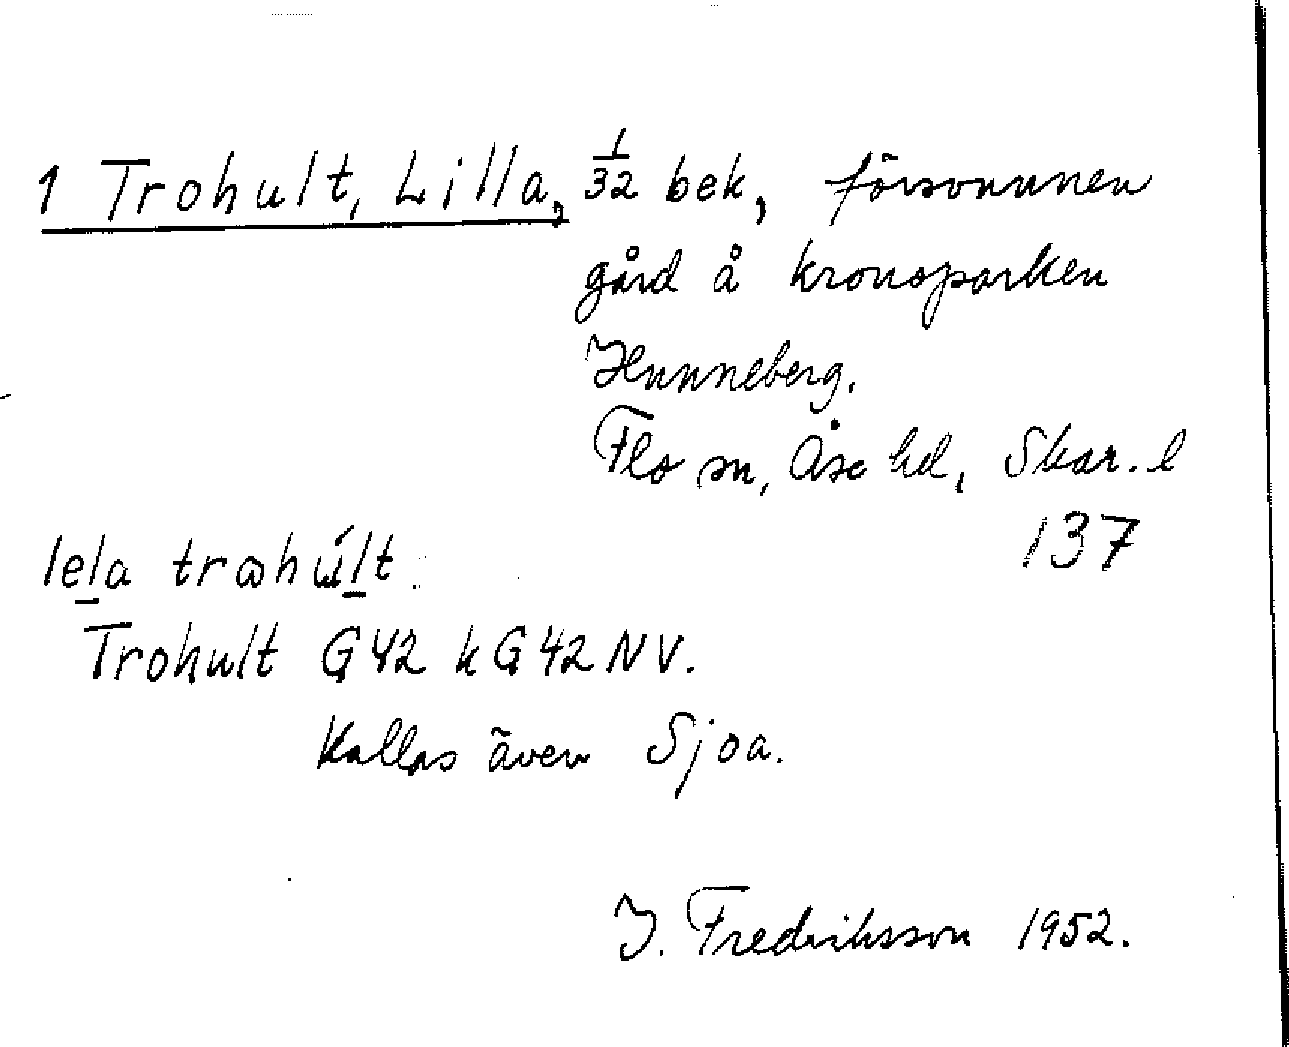 1 Trohult, Lilla, 1/32 bek, försvunnen
gård å kronoparken
Hunneberg.
Flo sn, Åse hd, Skar. l
137
lel̲a trꙍhú̇l̲t.
Trohult G42 k G42NV.
Kallas även Sjoa.
J. Fredriksson 1952.